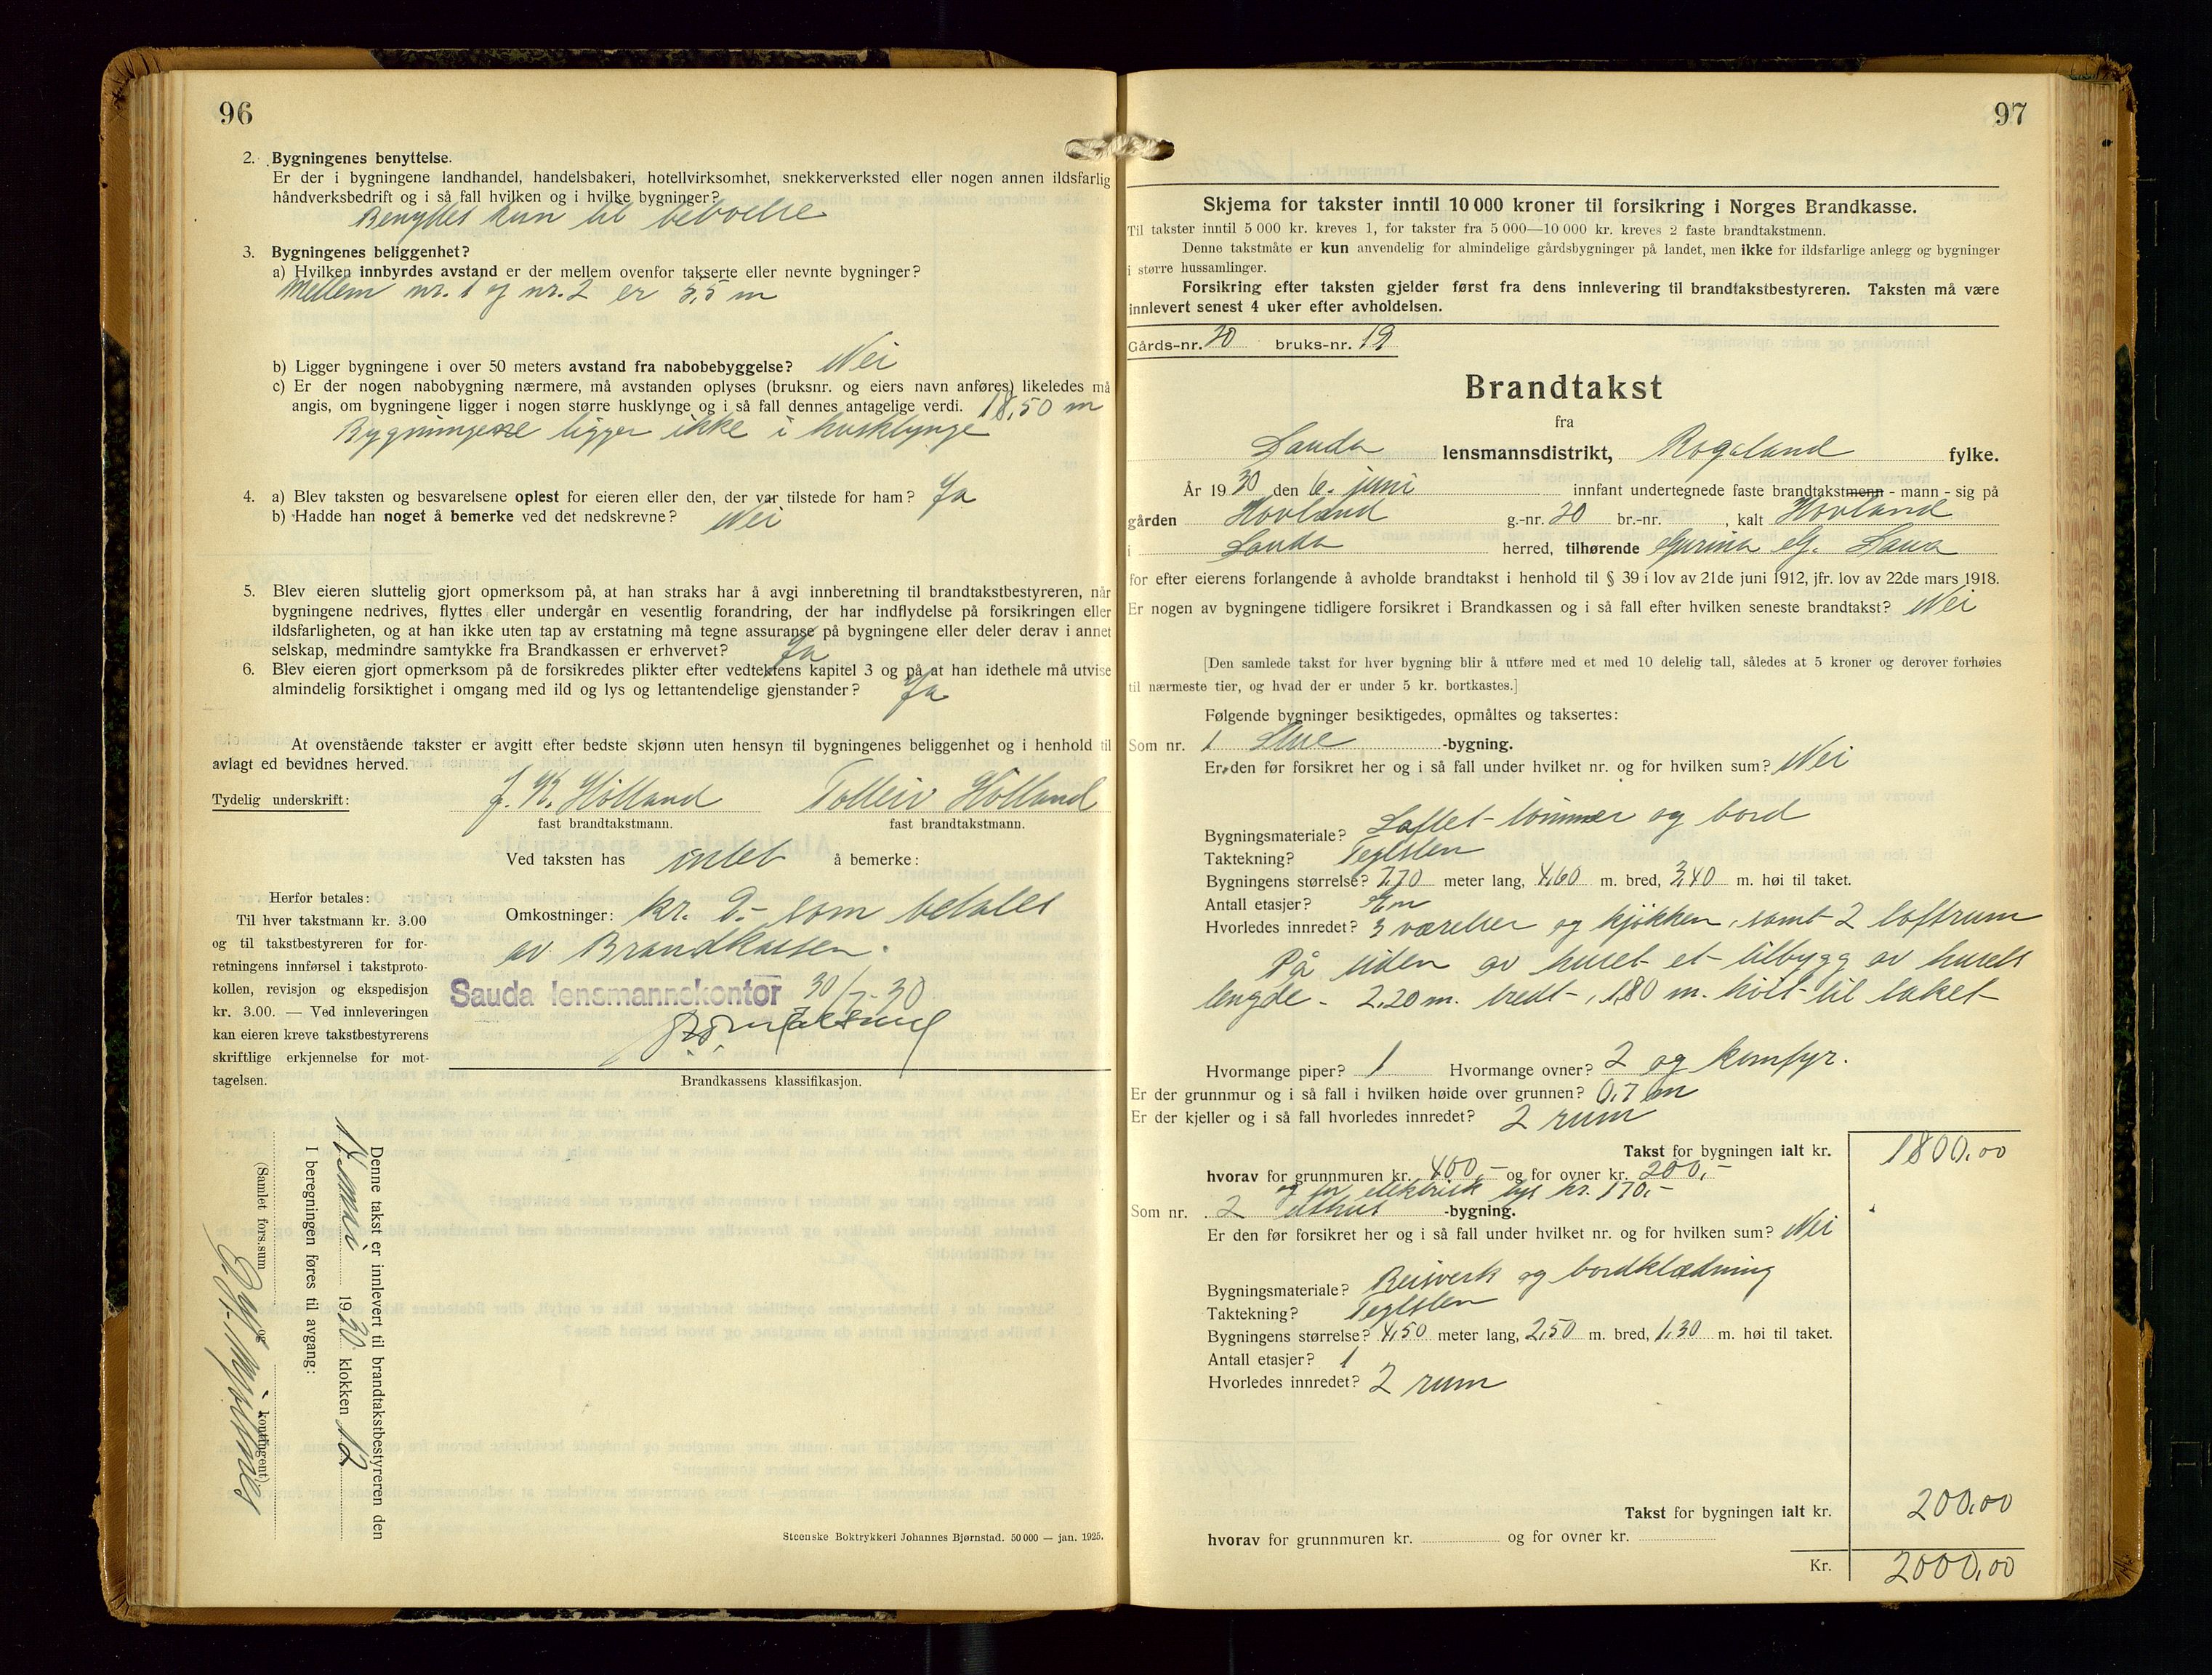 96
2. Bygningenes benyttelse.
Er der i bygningene landhandel, handelsbakeri, hotellvirksomhet, snekkerverksted eller nogen annen ildsfarlig
håndverksbedrift og i så fall hvilken og i hvilke bygninger?
Benyttes kun til beboelse
3. Bygningenes beliggenhet?
a) Hvilken innbyrdes avstand er der mellem ovenfor takserte eller nevnte bygninger?
Mellem nr. 1 og nr. 2 er 3,5 m
b) Ligger bygningene i over 50 meters avstand fra nabobebyggelse? Nei
c) Er der nogen nabobygning nærmere, må avstanden oplyses (bruksnr. og eiers navn anføres) likeledes må
angis, om bygningene ligger i nogen større husklynge og i så fall dennes antagelige verdi. 18,50 m
Bygningene ligger ikke i husklynge
4. a) Blev taksten og besvarelsene oplest for eieren eller den, der var tilstede for ham? Ja
b) Hadde han noget å bemerke ved det nedskrevne? Nei
5. Blev eieren sluttelig gjort opmerksom på, at han straks har å avgi innberetning til brandtakstbestyreren, når
bygningene nedrives, flyttes eller undergår en vesentlig forandring, der har indflydelse på forsikringen eller
ildsfarligheten, og at han ikke uten tap av erstatning må tegne assuranse på bygningene eller deler derav i annet
selskap, medmindre samtykke fra Brandkassen er erhvervet? Ja
6. Blev eieren gjort opmerksom på de forsikredes plikter efter vedtektens kapitel 3 og på at han idethele må utvise
almindelig forsiktighet i omgang med ild og lys og lettantendelige gjenstander? Ja
At ovenstående takster er avgitt efter bedste skjønn uten hensyn til bygningenes beliggenhet og i henhold til
avlagt ed bevidnes herved.
Tydelig underskrift: J. K. Hølland Tolleiv Hølland
fast brandtakstmann. fast brandtakstmann.
Ved taksten has intet å bemerke:
Omkostninger: kr. 9.- som betales
av Brandkassen.
Sauda lensmannskontor 30/7-30
Brandkassens klassifikasjon.
Herfor betales:
Til hver takstmann kr. 3.00
og til takstbestyreren for for-
retningens innførsel i takstproto-
kollen, revisjon og ekspedisjon
kr. 3.00. — Ved innleveringen
kan eieren kreve takstbestyrerens
skriftlige erkjennelse for mot-
tagelsen.
Denne takst er innlevert til brandtakstbestyreren den
1930 klokken 12
I beregningen føres til avgang:
(Samlet fors.sum og kontingent)
Steenske Boktrykkeri Johannes Bjørnstad. 50 000 — jan. 1925.
97
Skjema for takster inntil 10 000 kroner til forsikring i Norges Brandkasse.
Til takster inntil 5 000 kr. kreves 1, for takster fra 5 000—10 000 kr. kreves 2 faste brandtakstmenn.
Denne takstmåte er kun anvendelig for almindelige gårdsbygninger på landet, men ikke for ildsfarlige anlegg og bygninger
i større hussamlinger.
Forsikring efter taksten gjelder først fra dens innlevering til brandtakstbestyreren. Taksten må være
innlevert senest 4 uker efter avholdelsen.
Gårds-nr. 20 bruks-nr. 19
Brandtakst
fra
Sauda lensmannsdistrikt, Rogaland fylke.
År 1930 den 6. juni innfant undertegnede faste brandtakstmenn - mann - sig på
gården Hovland g.-nr. 20 br.-nr. , kalt Hovland
i Sauda herred, tilhørende Gurina G.
for efter eierens forlangende å avholde brandtakst i henhold til § 39 i lov av 21de juni 1912, jfr. lov av 22de mars 1918.
Er nogen av bygningene tidligere forsikret i Brandkassen og i så fall efter hvilken seneste brandtakst? Nei
[Den samlede takst for hver bygning blir å utføre med et med 10 delelig tall, således at 5 kroner og derover forhøies
til nærmeste tier, og hvad der er under 5 kr. bortkastes.]
Følgende bygninger besiktigedes, opmåltes og taksertes:
Som nr. 1 Stue -bygning.
Er den før forsikret her og i så fall under hvilket nr. og for hvilken sum? Nei
Bygningsmateriale? Laftet tømmer og bord
Taktekning? Teglsten
Bygningens størrelse? 7,70 meter lang, 4,60 m. bred, 3,40 m. høi til taket.
Antall etasjer? En
Hvorledes innredet? 3 værelser og kjøkken, samt 2 loftrum
På siden av huset et tilbygg av husets
lengde - 2,20 m. bredt, 1,80 m. høit til taket
Hvormange piper? 1 Hvormange ovner? 2 og komfyr.
Er der grunnmur og i så fall i hvilken høide over grunnen? 0,7 m
Er der kjeller og i så fall hvorledes innredet? 2 rum
Takst for bygningen ialt kr. 1800,00
hvorav for grunnmuren kr. 400,- og for ovner kr. 200,-
og for elektrisk lys kr. 170,-
Som nr. 2 uthus -bygning.
Er den før forsikret her og i så fall under hvilket nr. og for hvilken sum? Nei
Bygningsmateriale? Reisverk og bordklædning
Taktekning? Teglsten
Bygningens størrelse? 4,50 meter lang, 2,50 m. bred, 1,30 m. høi til taket.
Antall etasjer? 1
Hvorledes innredet? 2 rum
Takst for bygningen ialt kr. 200,00
hvorav for grunnmuren kr. og for ovner kr.
Kr. 2000,00